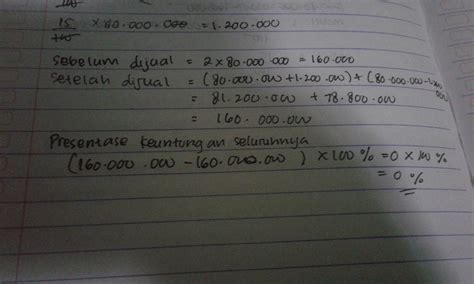 15/100 × 80.000.000 = 1.200.000
Sebelum dijual = 2 × 80.000.000 = 160.000
Setelah dijual = (80.000.000 + 1.200.000) + (80.000.000 - 1.200.000
= 81.200.000 + 78.800.000
= 160.000.000
Presentase keuntungan seluruhnya
(160.000.000 - 160.000.000) × 100 % = 0 × 100 %
= 0 %